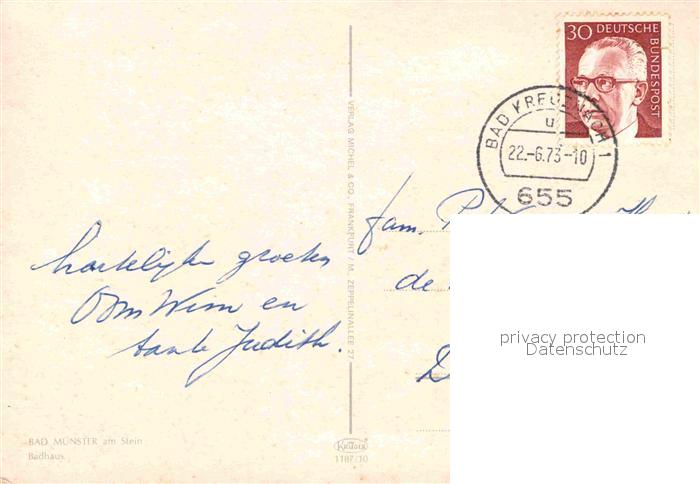 30 DEUTSCHE BUNDESPOST
BAD KREUZNACH 1
u
22.-6.73-10
655
VERLAG MICHEL & CO., FRANKFURT / M., ZEPPELINALLEE 27
fam. P.
de
hartelijke groeten
Oom Wim en
tante Judith.
privacy protection
Datenschutz
BAD MÜNSTER am Stein
Badhaus
Krüger
1187/10